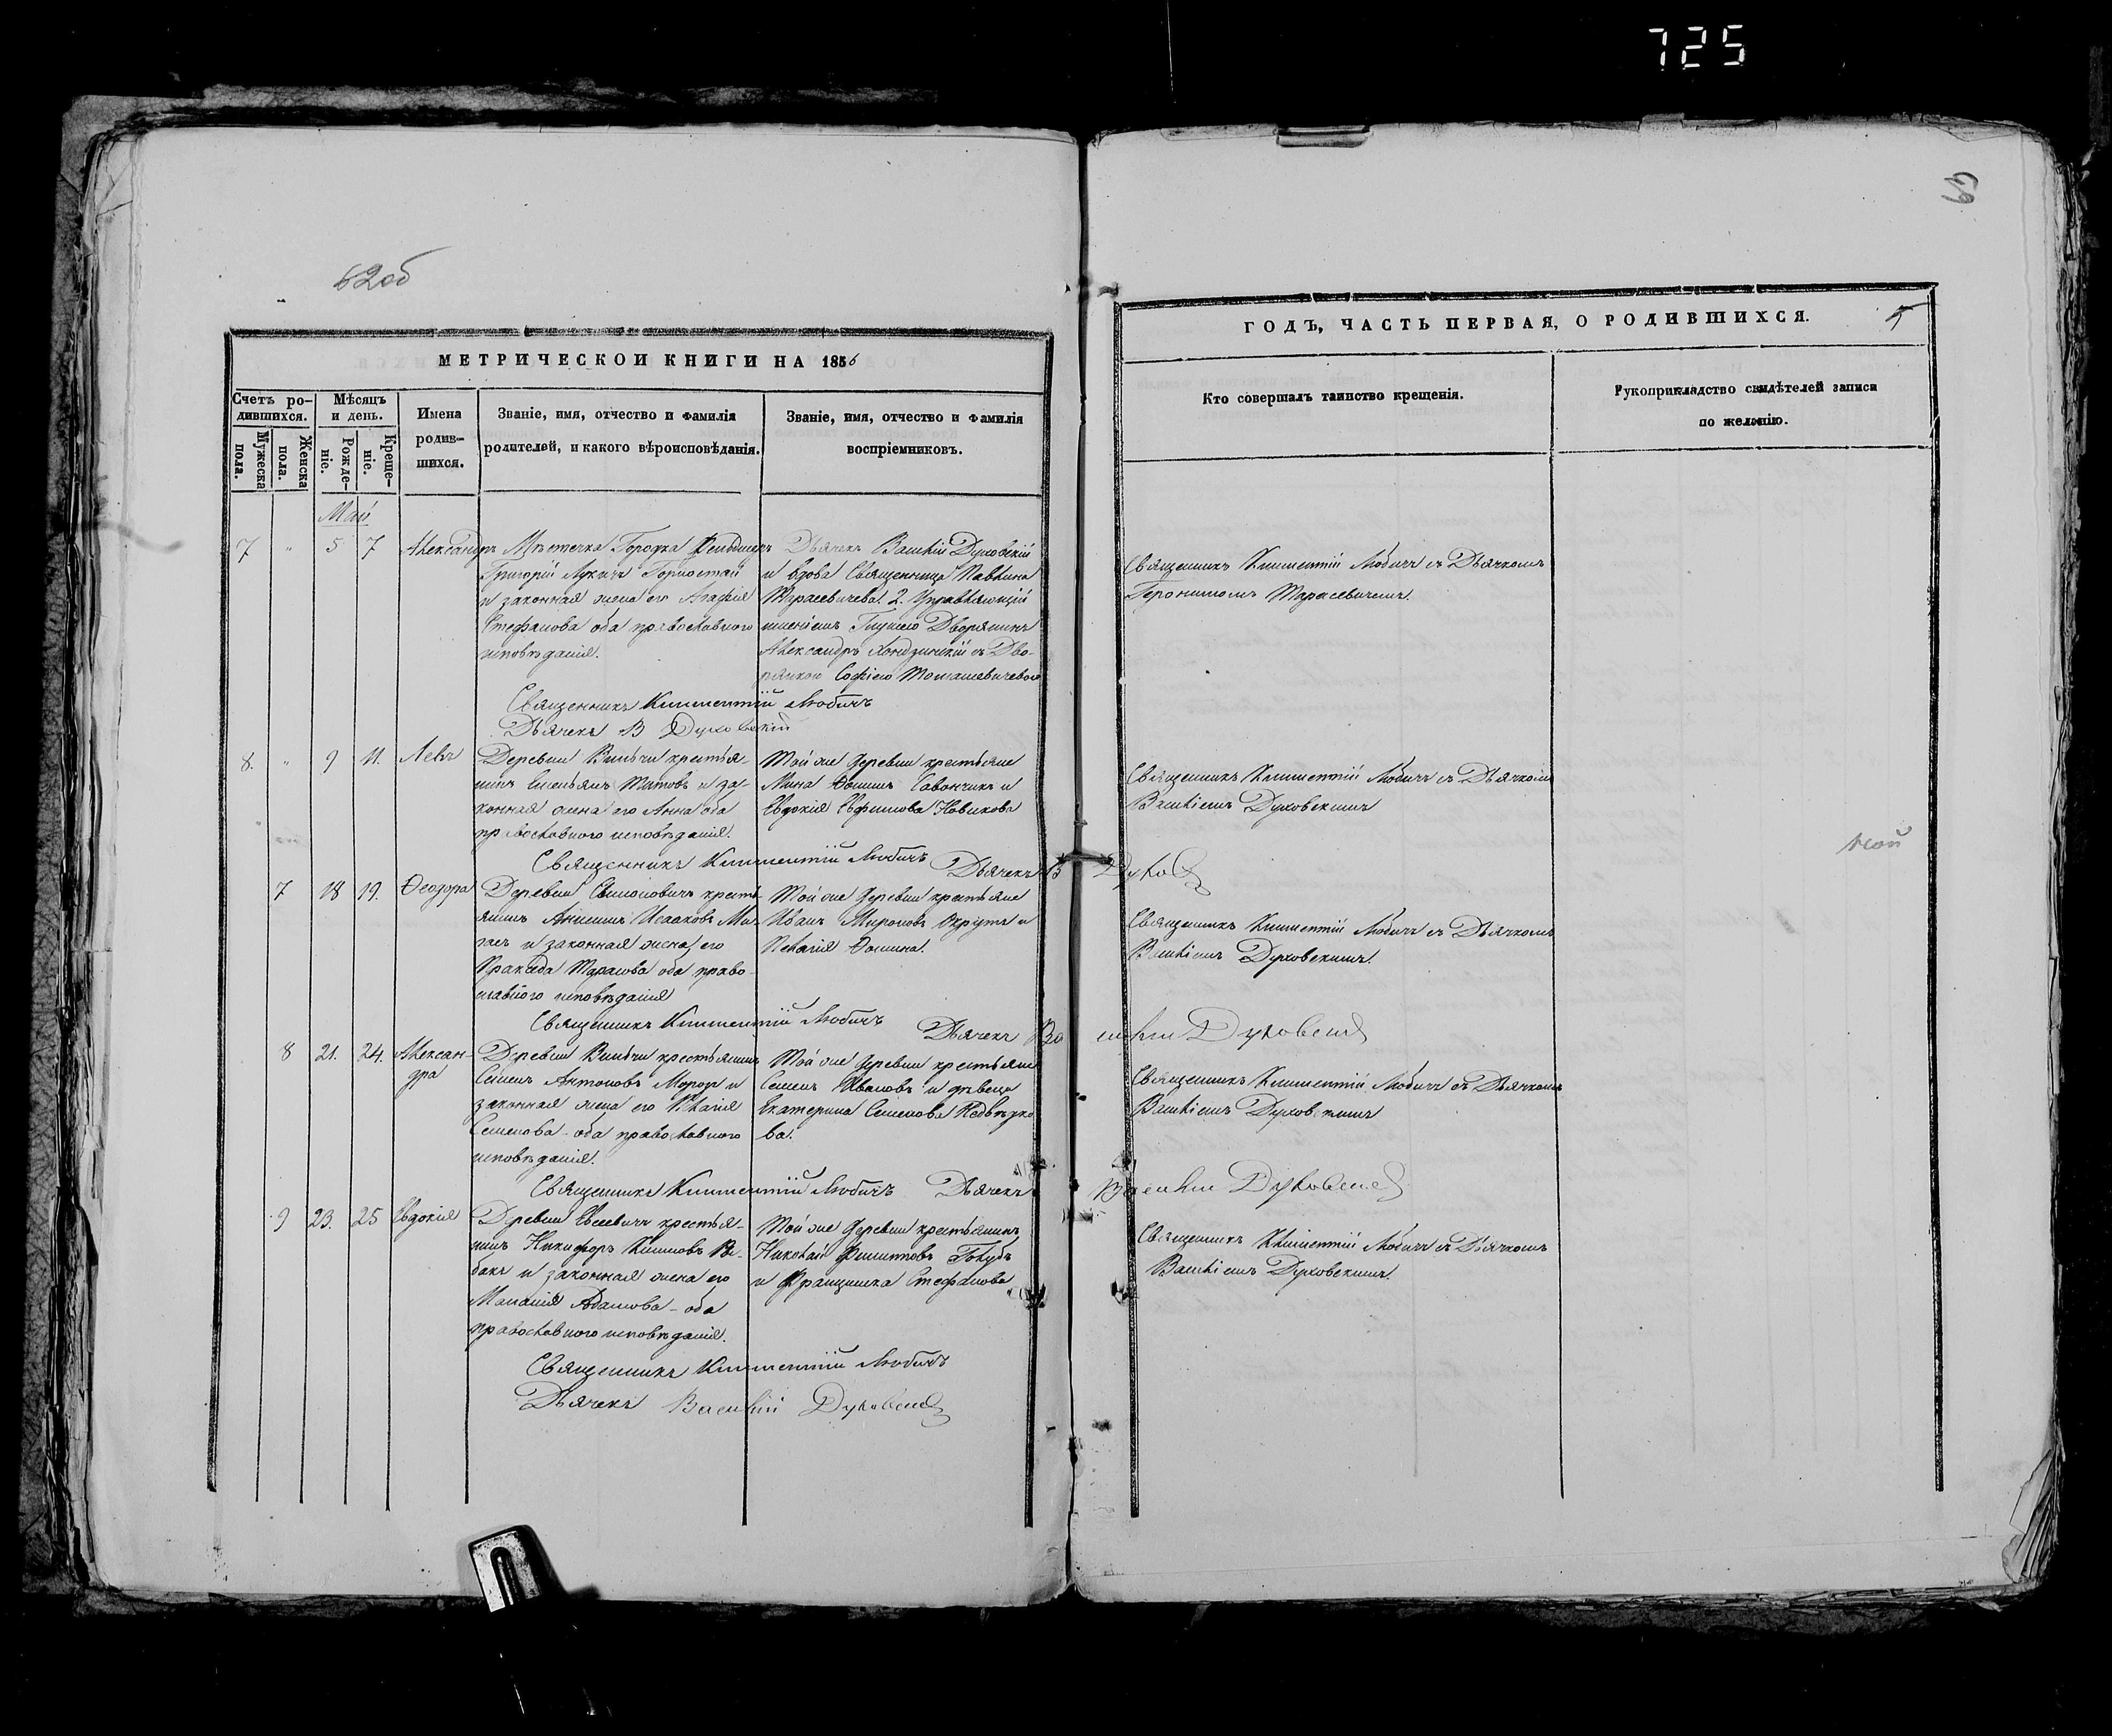 725
62об
МЕТРИЧЕСКОЙ КНИГИ НА 1856
Счетъ ро-
дившихся.
Мужеска
пола.
Женска
пола.
Мѣсяцъ
и день.
Рожде-
ніе.
Креще-
ніе.
Имена
родив-
шихся.
Званіе, имя, отчество и фамилія
родителей, и какого вѣроисповѣданія.
Званіе, имя, отчество и фамилія
воспріемниковъ.
Май
7 " 5 7 Александръ
Мѣстечка Городка Фельдшеръ
Григорій Лукичъ Горностай
и законная жена его Агафія
Стефанова оба православного
исповѣданія.
Дьячекъ Василій Духовскій
и вдова Священница Павлина
Тарасевичева. 2. Управляющій
имѣніемъ Дворянинъ
Александръ съ Дво-
рянкою Софіею Томашевичевою
Священникъ Климентій Любичъ
Дьячекъ В Духовскій
8. " 9 11. Левъ
Деревни крестья-
нинъ Емельянъ Титовъ и за-
конная жена его Анна оба
православного исповѣданія.
Той же деревни крестьяне
Мина Ѳоминъ Савончикъ и
Евдокія Евфимова Новикова
Священникъ Климентій Любичъ Дьячекъ В Духов
7 18 19. Ѳеодора
Деревни крестья-
янинъ Анисимъ Исааковъ
и законная жена его
Тарасова оба право-
славного исповѣданія
Той же деревни крестьяне
Иванъ Мироновъ и
Пелагія Ѳомина.
Священникъ Климентій Любичъ
Дьячекъ Василій Духовскій
8 21. 24. Алексан-
дра
Деревни крестьянинъ
Семенъ Антоновъ Мороз и
законная жена его
Семенова - оба православного
исповѣданія.
Той же деревни крестьяне
Семенъ Ивановъ и дѣвица
Екатерина Семенова
ва.
Священникъ Климентій Любичъ Дьячекъ Василій Духовскій
9 23. 25 Евдокія
Деревни крестья-
нинъ Никифоръ Климовъ
и законная жена его
Маланія Адамова - оба
православного исповѣданія.
Той же деревни крестьянинъ
Николай Филиповъ Голубъ
и Францишка Стефанова
Священникъ Климентій Любичъ
Дьячекъ Василій Духовскій
63
5
ГОДЪ, ЧАСТЬ ПЕРВАЯ, О РОДИВШИХСЯ.
Кто совершалъ таинство крещенія.
Рукоприкладство свидѣтелей записи
по желанію.
Священникъ Климентій Любичъ съ Дьячкомъ
Геронимомъ Тарасевичемъ.
Священникъ Климентій Любичъ съ Дьячкомъ
Василіемъ Духовскимъ
Священникъ Климентій Любичъ съ Дьячкомъ
Василіемъ Духовскимъ.
Священникъ Климентій Любичъ съ Дьячкомъ
Василіемъ Духовскимъ
Священникъ Климентій Любичъ съ Дьячкомъ
Василіемъ Духовскимъ.